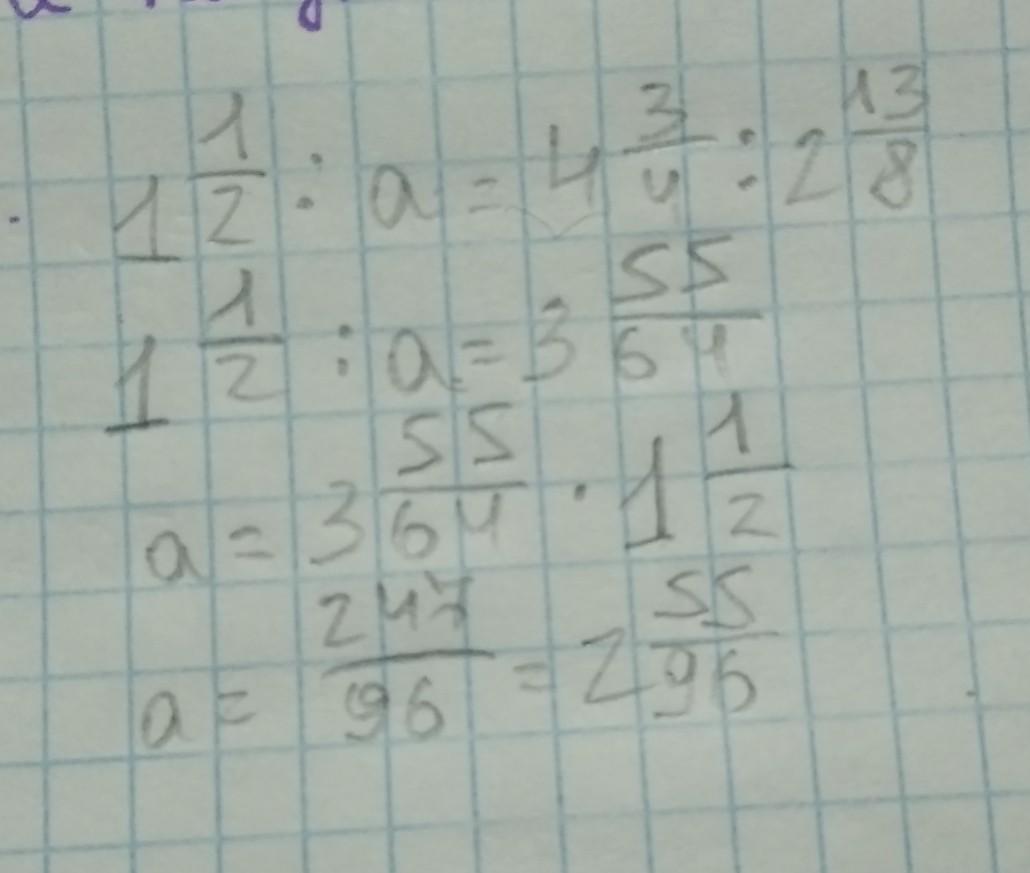 1 1/2 : a = 4 3/4 : 2 13/8
1 1/2 : a = 3 55/64
a = 3 55/64 · 1 1/2
a = 247/96 = 2 55/96